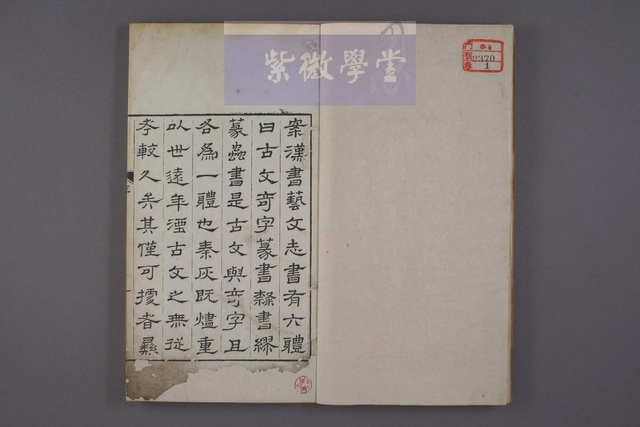 紫微學堂
2370
1
案漢書藝文志書有六體
曰古文奇字篆書隸書繆
篆蟲書是古文與奇字且
各為一體也秦灰既燼重
以世遠年湮古文之無從
考較久矣其僅可據者彝